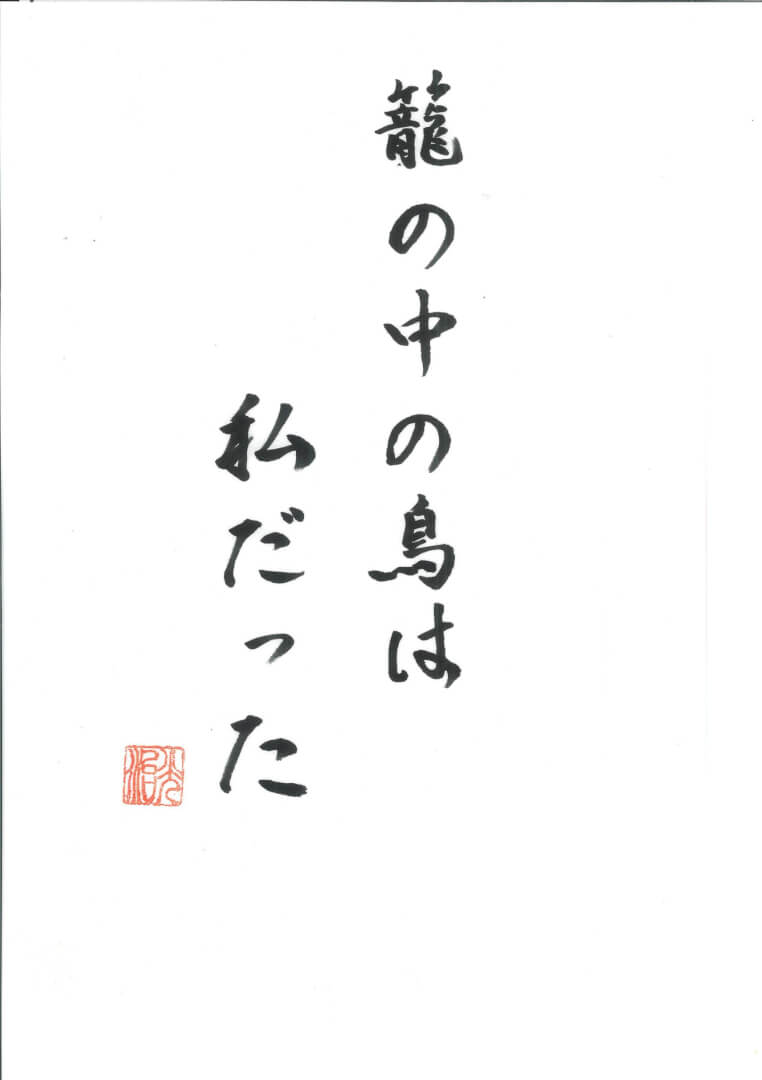 籠の中の鳥は
私だった